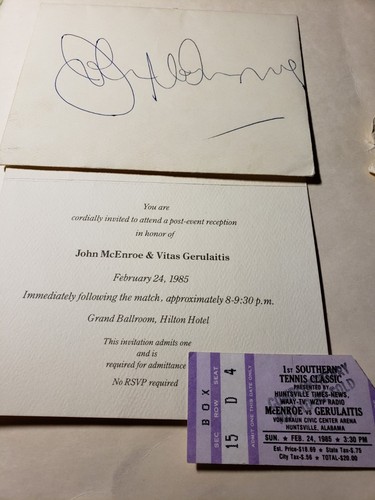 John McEnroe
You are
cordially invited to attend a post-event reception
in honor of
John McEnroe & Vitas Gerulaitis
February 24, 1985
Immediately following the match, approximately 8-9:30 p.m.
Grand Ballroom, Hilton Hotel
This invitation admits one
and is
required for admittance
No RSVP required
BOX
SEC ROW SEAT
15 D 4
ADMIT ONE THIS DATE ONLY
1ST SOUTHERN
TENNIS CLASSIC
PRESENTED BY
HUNTSVILLE TIMES-NEWS,
WAAY-TV, WZYP RADIO
McENROE VS GERULAITIS
VON BRAUN CIVIC CENTER ARENA
HUNTSVILLE, ALABAMA
SUN. ★ FEB. 24, 1985 ★ 3:30 PM
Est. Price-$18.69 ★ State Tax-$.75
City Tax-$.56 ★ TOTAL-$20.00